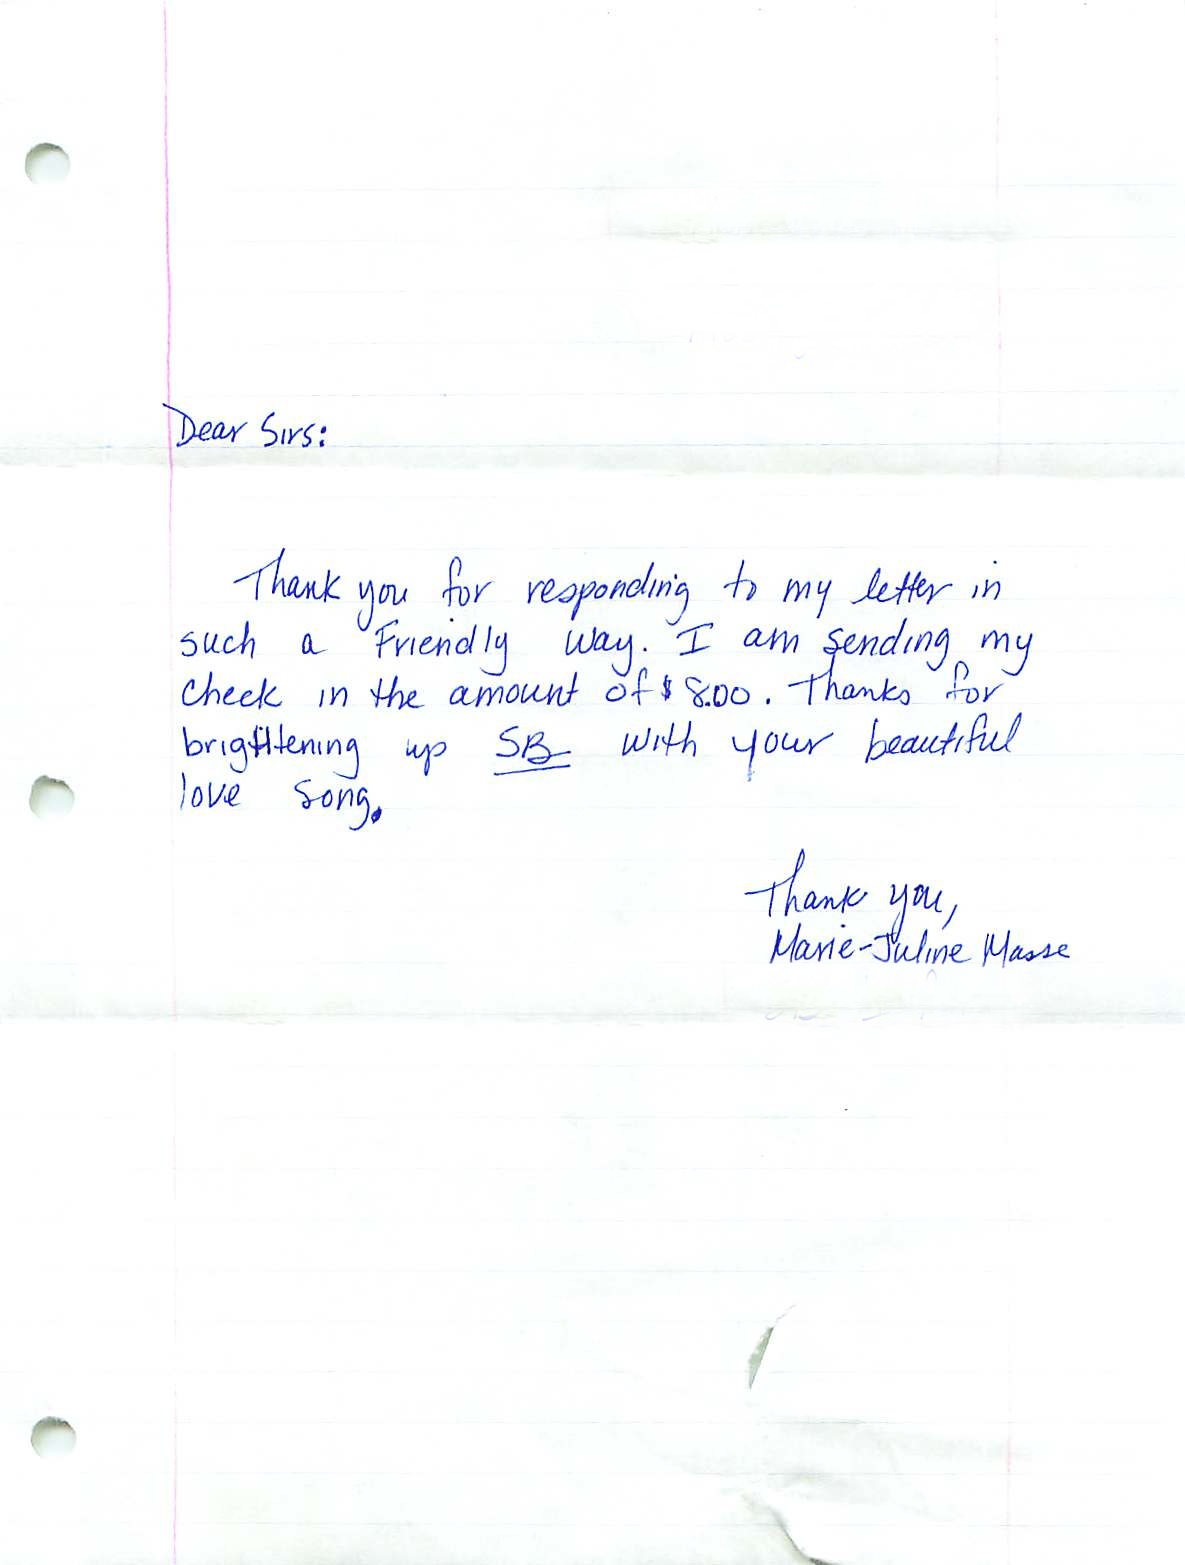 Dear Sirs:
Thank you for responding to my letter in
such a Friendly way. I am sending my
check in the amount of $8.00. Thanks for
brightening up SB with your beautiful
love song.
Thank you,
Marie-Juline Masse